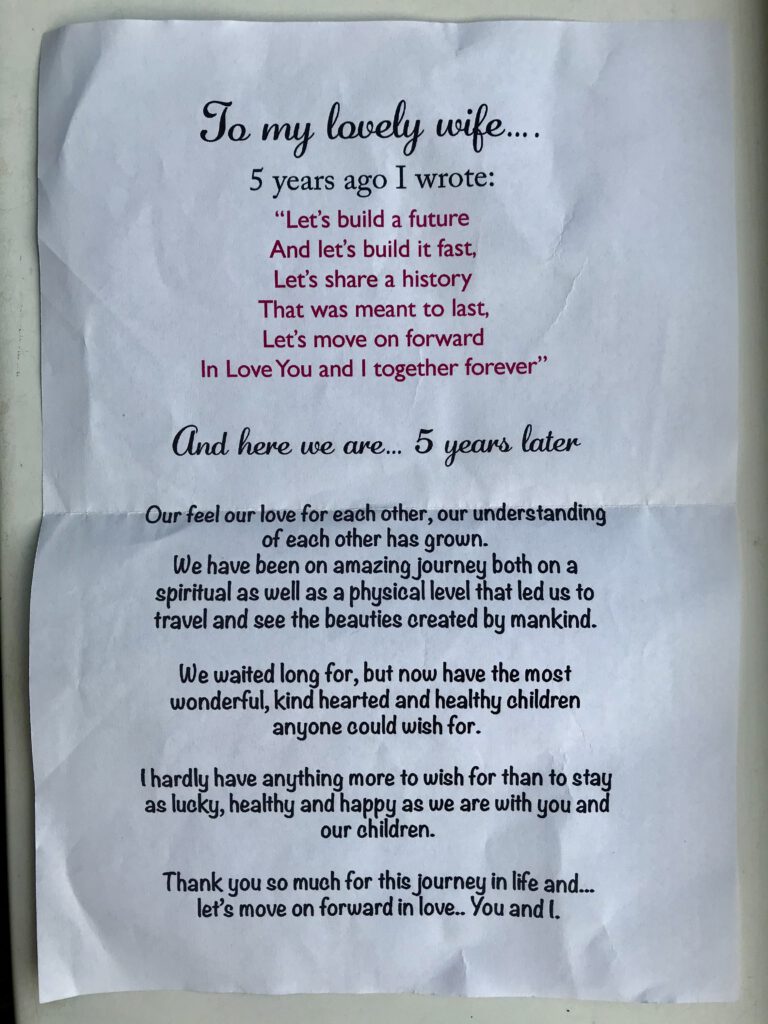 To my lovely wife....
5 years ago I wrote:
“Let’s build a future
And let’s build it fast,
Let’s share a history
That was meant to last,
Let’s move on forward
In Love You and I together forever”
And here we are... 5 years later
Our feel our love for each other, our understanding
of each other has grown.
We have been on amazing journey both on a
spiritual as well as a physical level that led us to
travel and see the beauties created by mankind.
We waited long for, but now have the most
wonderful, kind hearted and healthy children
anyone could wish for.
I hardly have anything more to wish for than to stay
as lucky, healthy and happy as we are with you and
our children.
Thank you so much for this journey in life and...
let’s move on forward in love.. You and I.